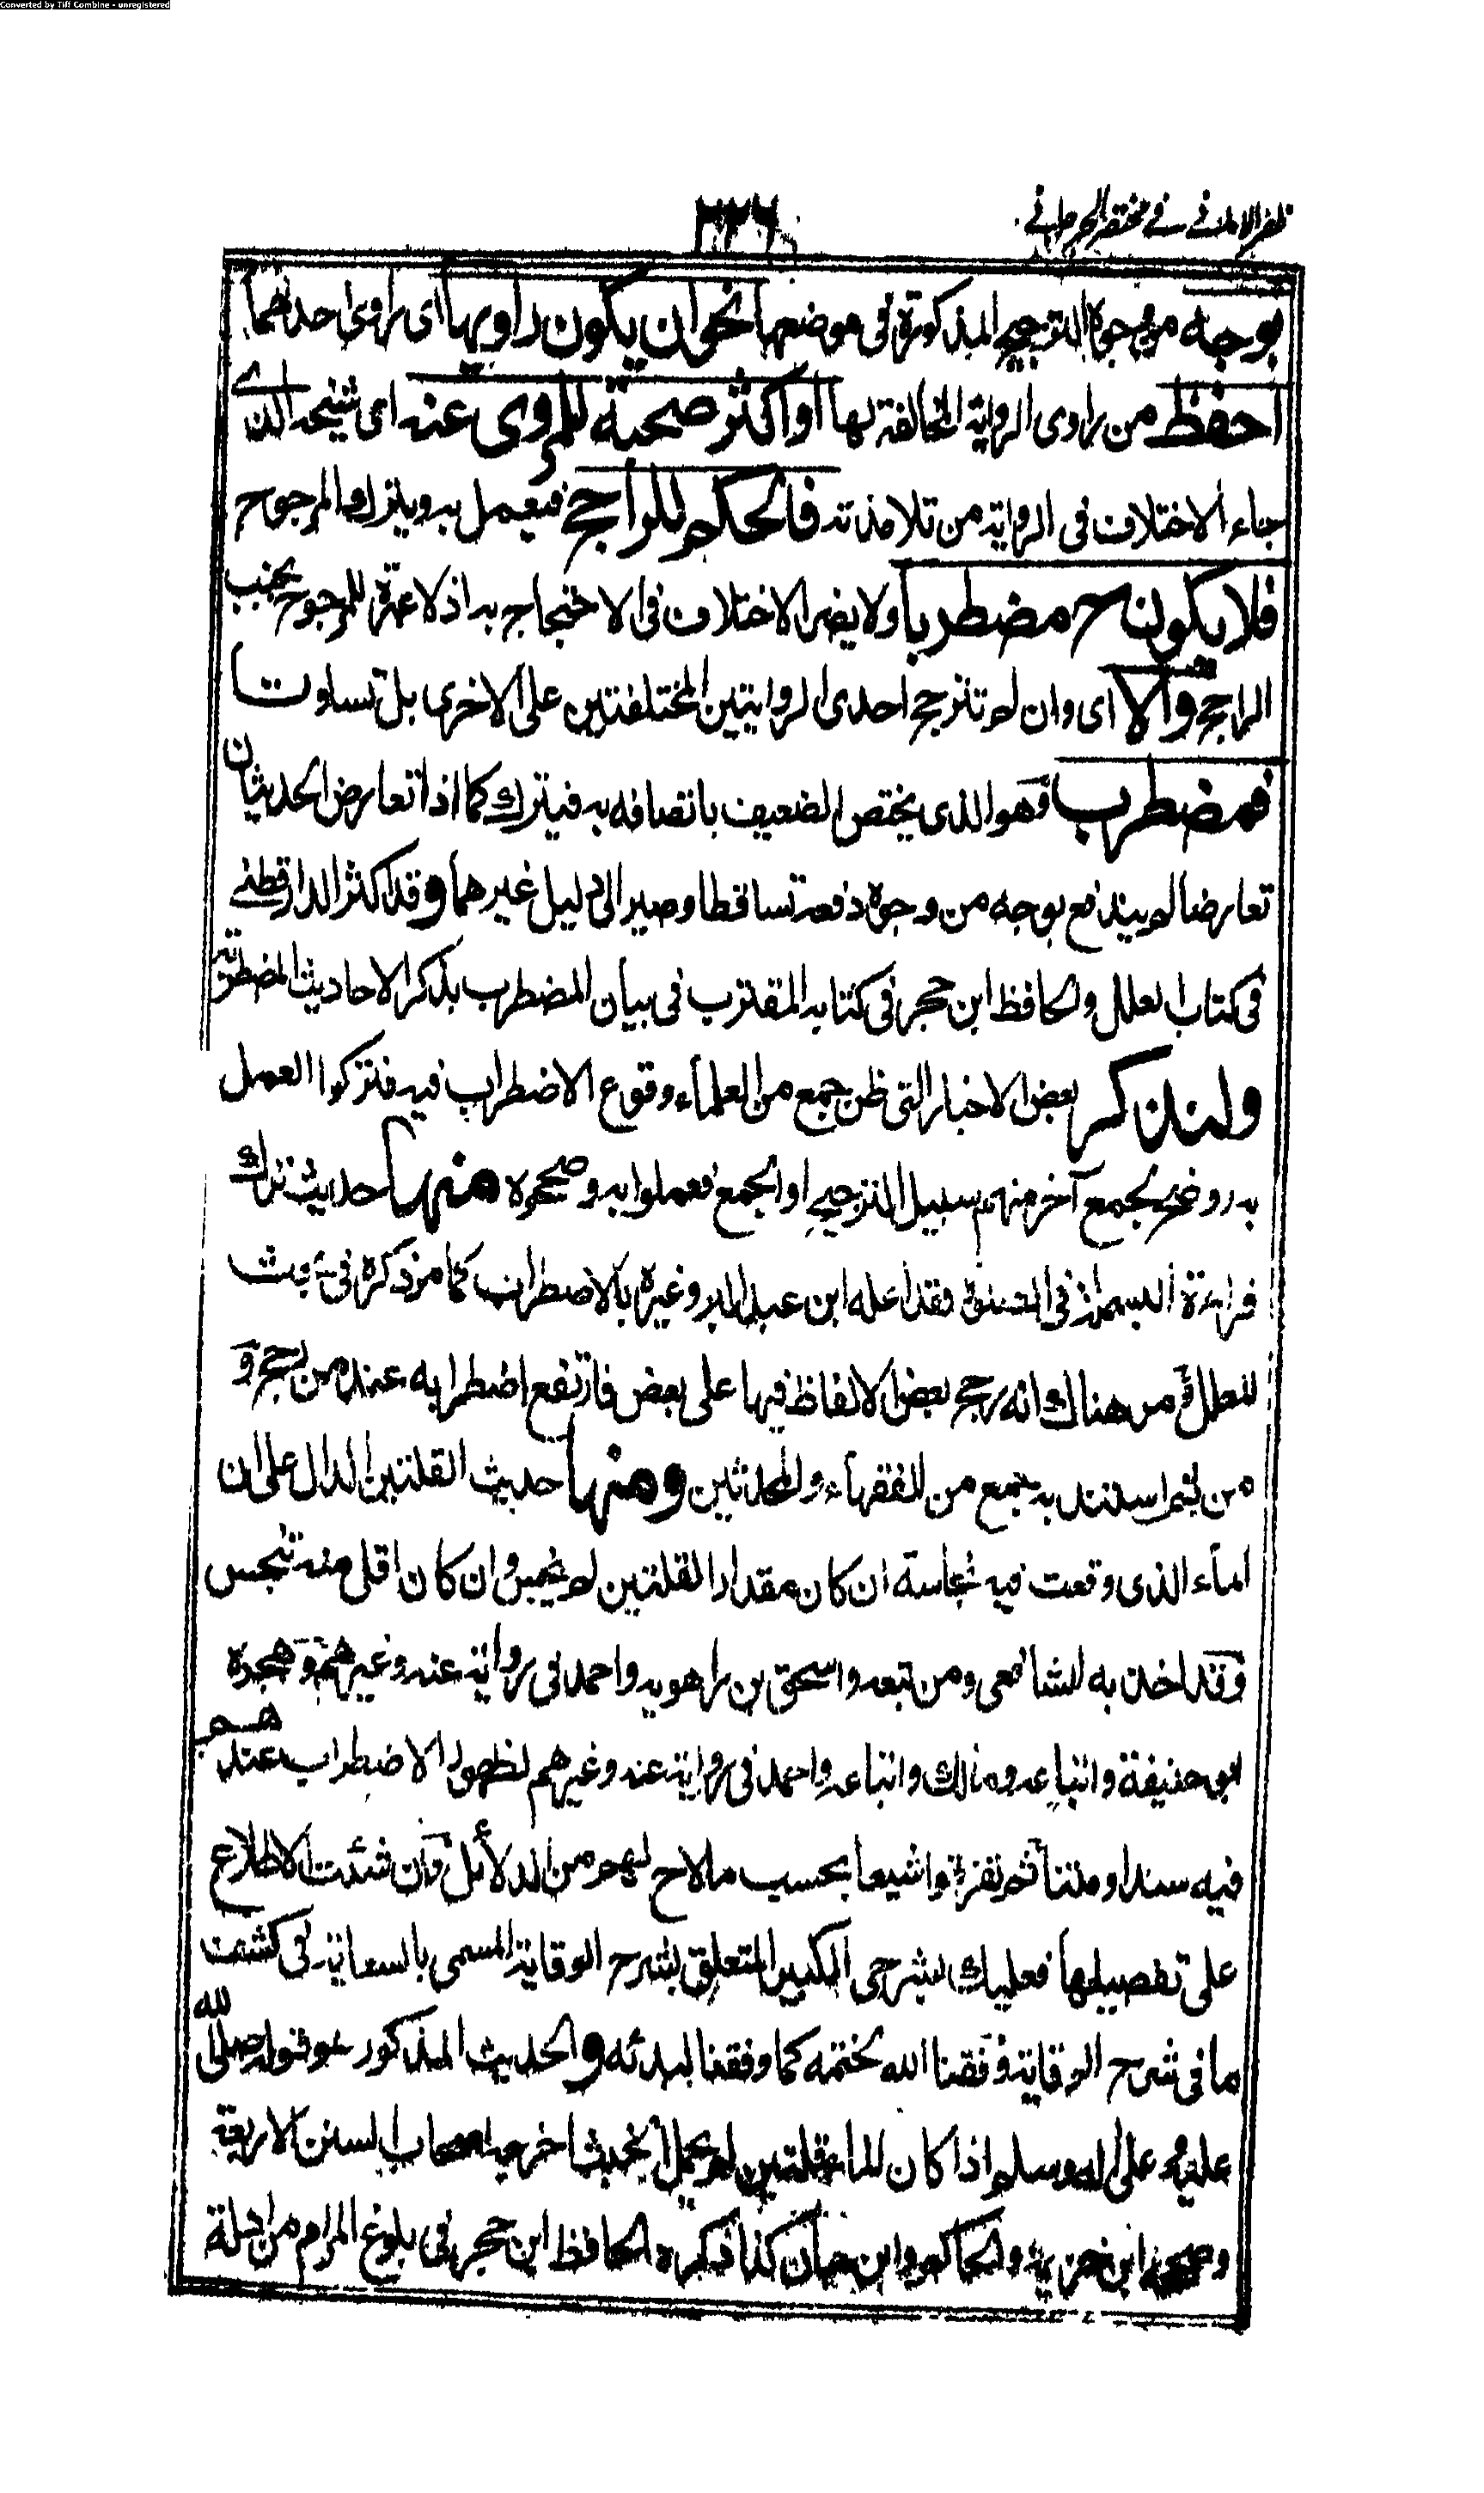 Converted by Tiff Combine - unregistered
ظفر الامانی فی مختصر الجرجانی
۲۲۶
بوجه من وجوه الترجیح المذکورة فی موضعها نحو ان یکون راویها ای راوی احدهما
احفظ من راوی الروایة المخالفة لها او اکثر صحبة للمروی عنه ای شیخه الذی
جاء الاختلاف فی الروایة من تلامذته فالحکم للراجح فیعمل به ویترک المرجوح
فلا یکون ح مضطربا ولا یضر الاختلاف فی الاحتجاج به اذ لا عبرة للمرجوح بجنب
الراجح والا ای وان لم تترجح احدی الروایتین المختلفتین علی الاخری بل تساوت
فمضطرب فهو الذی یختص الضعیف باتصافه به فیترک کما اذا تعارض الحدیثان
تعارضا لم یندفع بوجه من وجوه دفعه تساقطا وصیر الی دلیل غیرهما وقد اکثر الدارقطنی
فی کتاب العلل والحافظ ابن حجر فی کتابه المقترب فی بیان المضطرب بذکر الاحادیث المضطربة
ولنذکر بعض الاخبار التی ظن جمع من العلماء وقوع الاضطراب فیه فترکوا العمل
به ووضح لجمع آخر منهم سبیل الترجیح او الجمع فعملوا به وصححوه منها حدیث ترک
قراءة البسملة فی الصلوة فقد اعله ابن عبد البر وغیره بالاضطراب کما مر ذکره فی بحث
المعلل ومر هناک انه رجح بعض الالفاظ فیها علی بعض فارتفع اضطرابه عند من رجح و
من ثم استند به جمع من الفقهاء والمحدثین ومنها حدیث القلتین الدال علی ان
الماء الذی وقعت فیه نجاسة ان کان مقدار القلتین لم ینجس وان کان اقل منه تنجس
وقد اخذ به الشافعی ومن تبعه واسحق بن راهویه واحمد فی روایة عنه وغیرهم وهجره
ابو حنیفة واتباعه ومالک واتباعه واحمد فی روایة عنه وغیرهم لظهور الاضطراب عندهم
فیه سندا ومتنا ثم تفرقوا شیعا بحسب ما لاح لهم من الدلائل فان شئت الاطلاع
علی تفصیلها فعلیک بشرحی الکبیر المتعلق بشرح الوقایة المسمی بالسعایة فی کشف
ما فی شرح الوقایة وفقنا الله لختمه کما وفقنا لبدئه والحدیث المذکور هو قوله صلی الله
علیه وعلی آله وسلم اذا کان الماء قلتین لم یحمل الخبث اخرجه اصحاب السنن الاربعة
وصححه ابن خزیمة والحاکم وابن حبان کذا ذکره الحافظ ابن حجر فی بلوغ المرام من ادلة